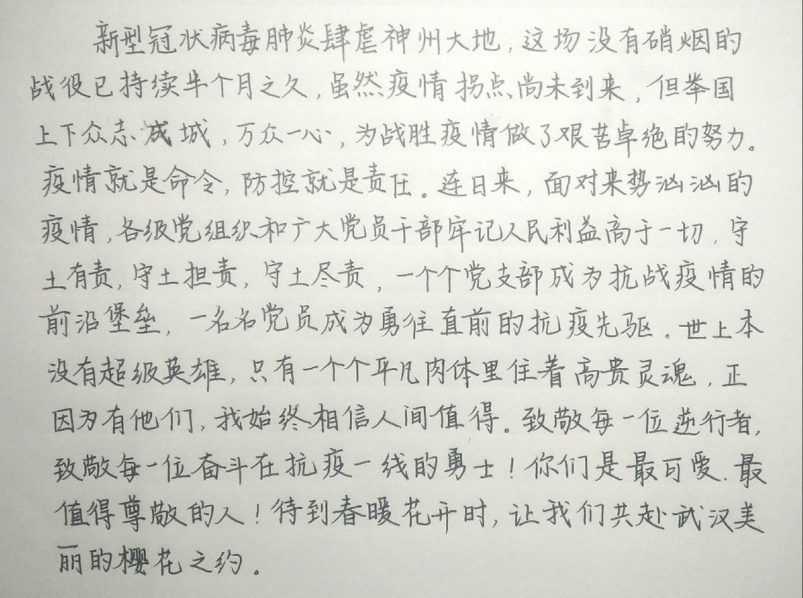 新型冠状病毒肺炎肆虐神州大地，这场没有硝烟的
战役已持续半个月之久，虽然疫情拐点尚未到来，但举国
上下众志成城，万众一心，为战胜疫情做了艰苦卓绝的努力。
疫情就是命令，防控就是责任。连日来，面对来势汹汹的
疫情，各级党组织和广大党员干部牢记人民利益高于一切，守
土有责，守土担责，守土尽责，一个个党支部成为抗战疫情的
前沿堡垒，一名名党员成为勇往直前的抗疫先驱。世上本
没有超级英雄，只有一个个平凡肉体里住着高贵灵魂，正
因为有他们，我始终相信人间值得。致敬每一位逆行者，
致敬每一位奋斗在抗疫一线的勇士！你们是最可爱、最
值得尊敬的人！待到春暖花开时，让我们共赴武汉美
丽的樱花之约。